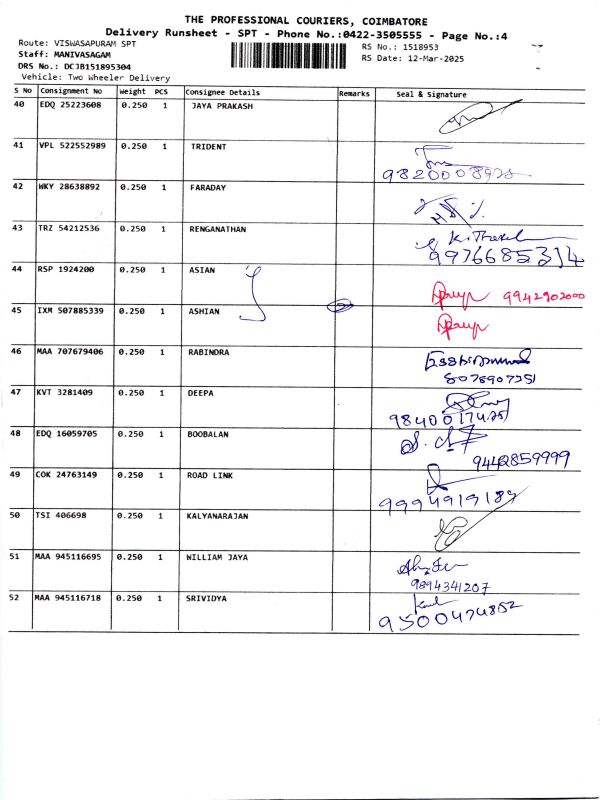 THE PROFESSIONAL COURIERS, COIMBATORE
Delivery Runsheet - SPT - Phone No.:0422-3505555 - Page No.:4
Route: VISWASAPURAM SPT
RS No.: 1518953
Staff: MANIVASAGAM
RS Date: 12-Mar-2025
DRS No.: DCJB151895304
Vehicle: Two Wheeler Delivery
S No Consignment No Weight PCS Consignee Details Remarks Seal & Signature
40 EDQ 25223608 0.250 1 JAYA PRAKASH
41 VPL 522552989 0.250 1 TRIDENT
42 WKY 28638892 0.250 1 FARADAY
43 TRZ 54212536 0.250 1 RENGANATHAN
9976685314
44 RSP 1924200 0.250 1 ASIAN
9942902000
45 IXM 507885339 0.250 1 ASHIAN
46 MAA 707679406 0.250 1 RABINDRA
8078907351
47 KVT 3281409 0.250 1 DEEPA
48 EDQ 16059705 0.250 1 BOOBALAN
9442859999
49 COK 24763149 0.250 1 ROAD LINK
9994919189
50 TSI 406698 0.250 1 KALYANARAJAN
51 MAA 945116695 0.250 1 WILLIAM JAYA
9894341207
52 MAA 945116718 0.250 1 SRIVIDYA
9500474852